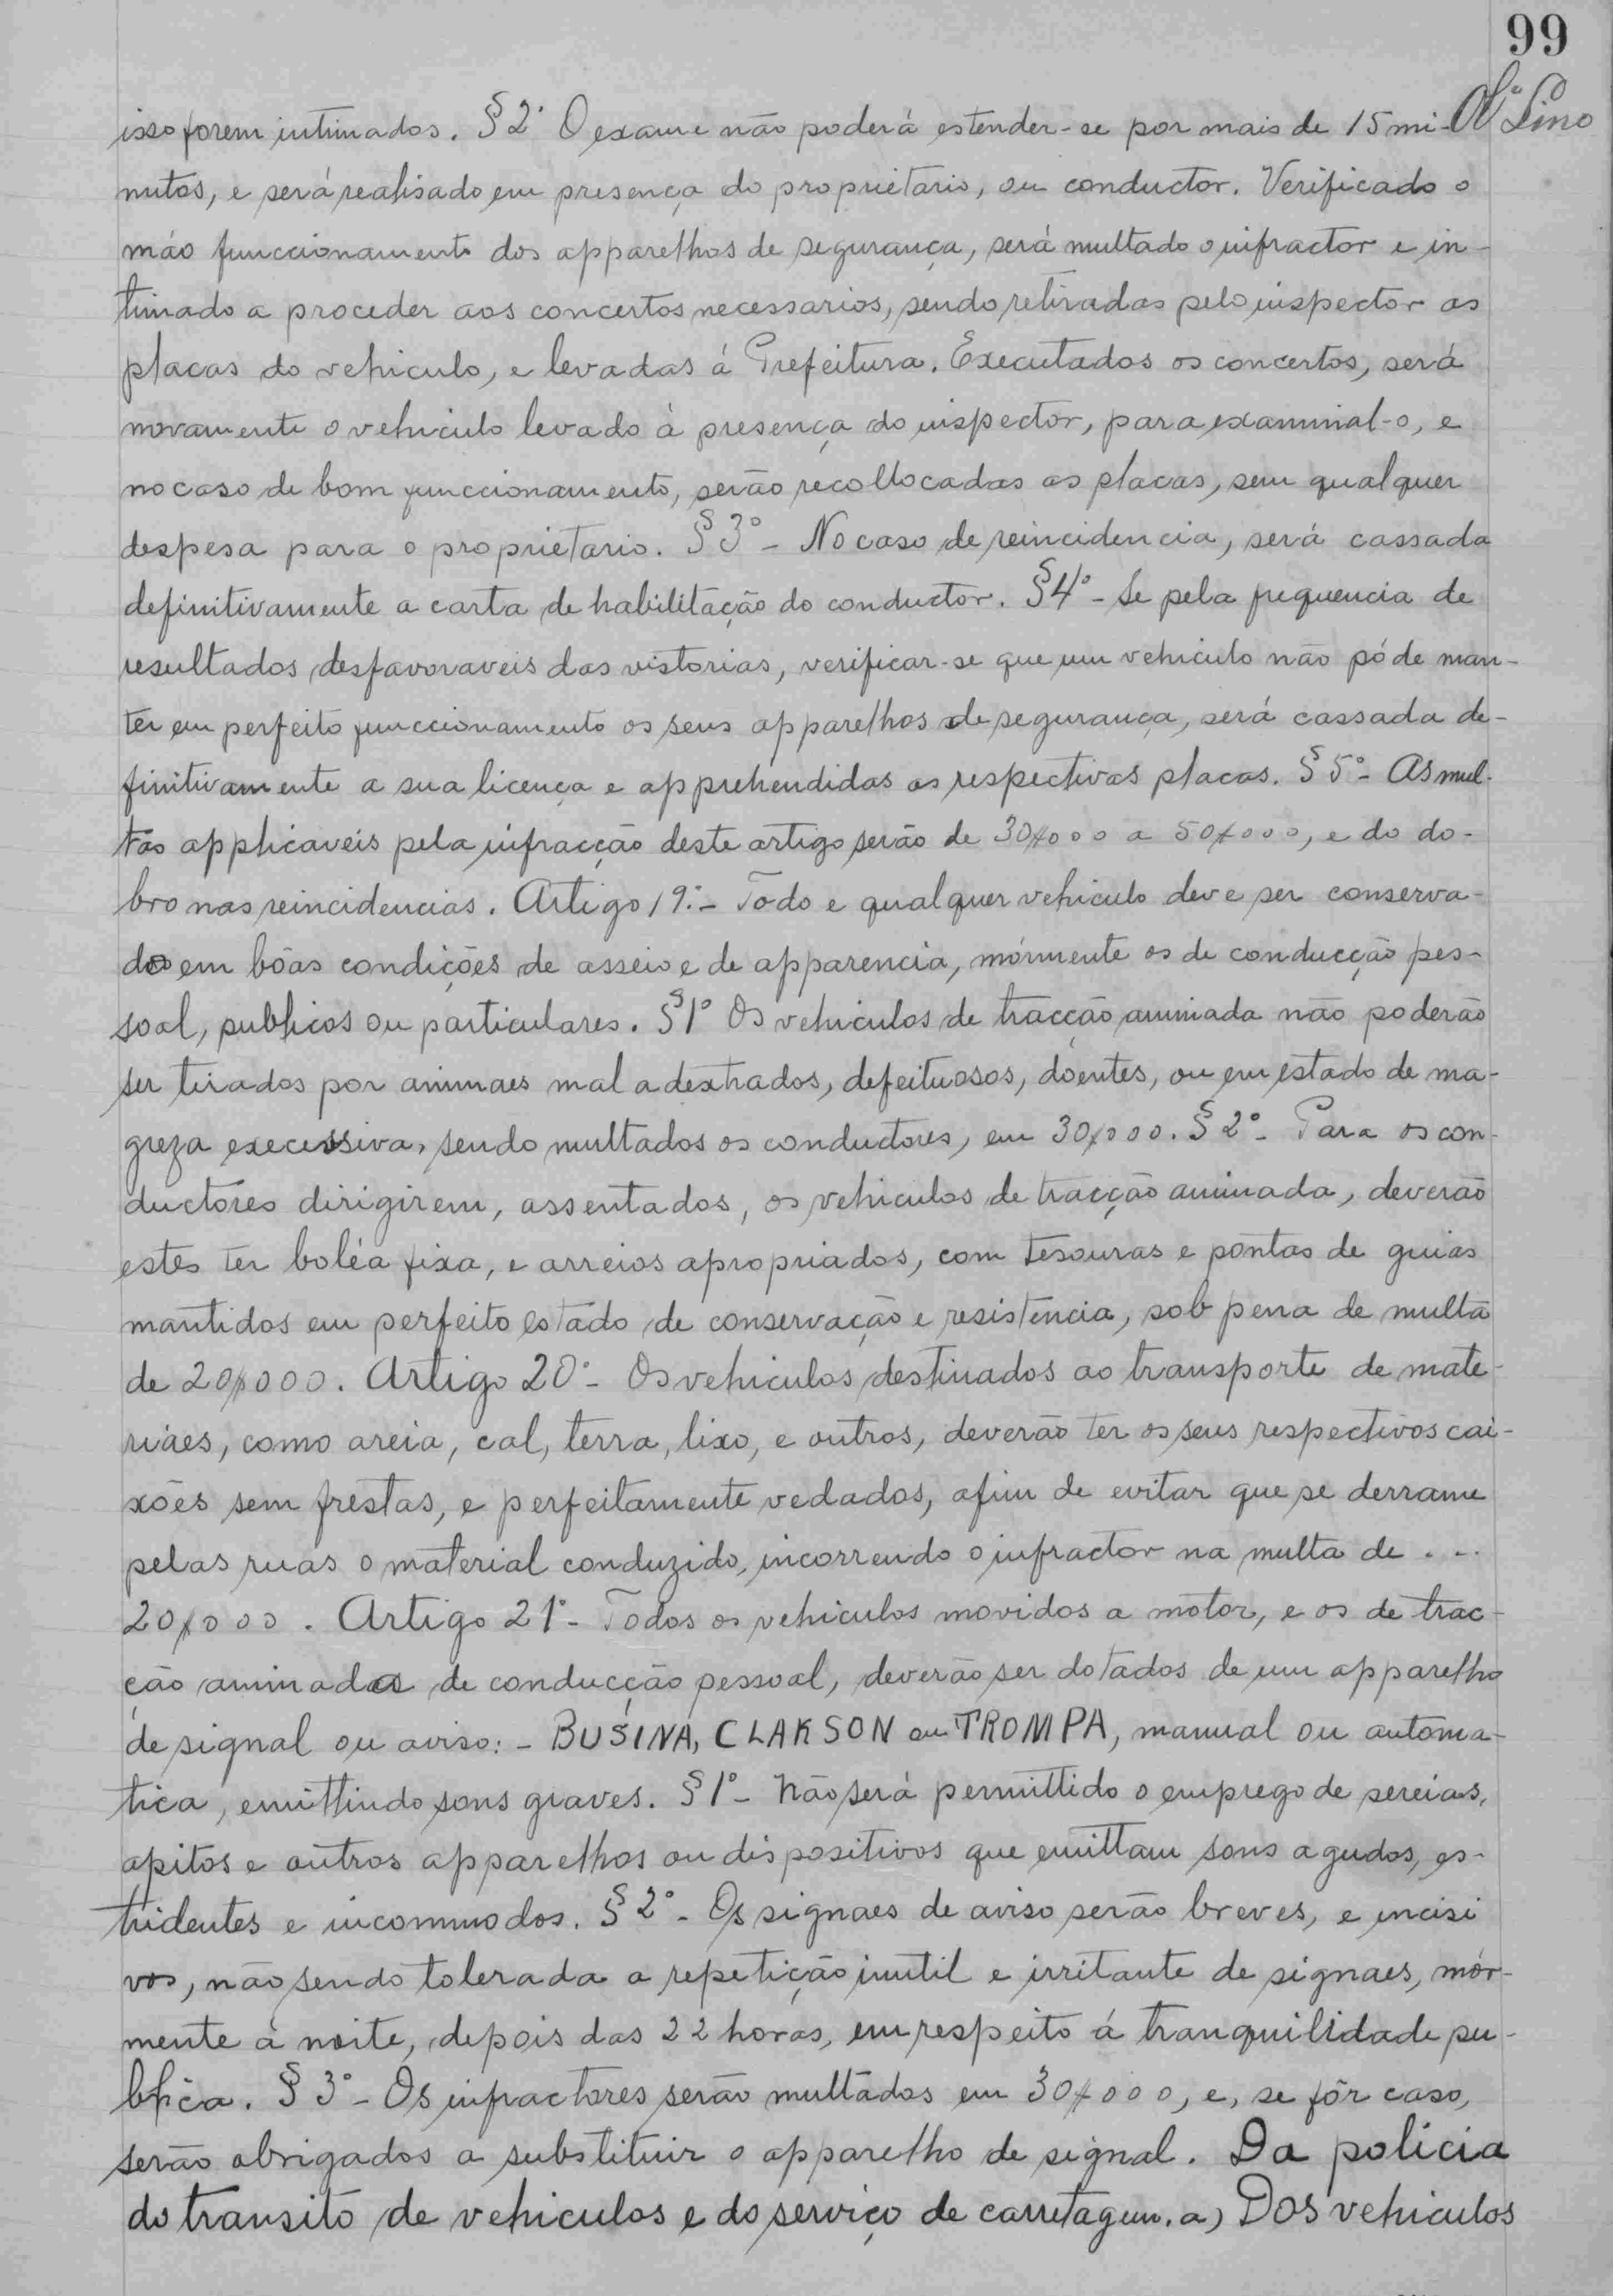 99
isso forem intimados. § 2º O exame não poderá estender-se por mais de 15 mi-
Lino
nutos, e será realisado em presença do proprietario, ou conductor. Verificado o
máo funccionamento dos apparelhos de segurança, será multado o infractor e in-
timado a proceder aos concertos necessarios, sendo retiradas pelo inspector as
placas do vehiculo, e levadas á Prefeitura. Executados os concertos, será
novamente o vehiculo levado à presença do inspector, para examinal-o, e
no caso de bom funccionamento, serão recollocadas as placas, sem qualquer
despesa para o proprietario. § 3º - No caso de reincidencia, será cassada
definitivamente a carta de habilitação do conductor. § 4º - Se pela frequencia de
resultados desfavoraveis das vistorias, verificar-se que um vehiculo não póde man-
ter em perfeito funccionamento os seus apparelhos de segurança, será cassada de-
finitivamente a sua licença e apprehendidas as respectivas placas. § 5º - As mul-
tas applicaveis pela infracção deste artigo serão de 30$000 a 50$000, e do do-
bro nas reincidencias. Artigo 19º - Todo e qualquer vehiculo deve ser conserva-
do em bôas condições de asseio e de apparencia, mórmente os de conducção pes-
soal, publicos ou particulares. § 1º Os vehiculos de tracção animada não poderão
ser tirados por animaes mal adextrados, defeituosos, doentes, ou em estado de ma-
greza execessiva, sendo multados os conductores, em 30$000. § 2º - Para os con-
ductores dirigirem, assentados, os vehiculos de tracção animada, deverão
estes ter boléa fixa, e arreios apropriados, com tesouras e pontas de guias
mantidos em perfeito estado de conservação e resistencia, sob pena de multa
de 20$000. Artigo 20º - Os vehiculos destinados ao transporte de mate-
riaes, como areia, cal, terra, lixo, e outros, deverão ter os seus respectivos cai-
xões sem frestas, e perfeitamente vedados, afim de evitar que se derrame
pelas ruas o material conduzido, incorrendo o infractor na multa de ...
20$000. Artigo 21º - Todos os vehiculos movidos a motor, e os de trac-
ção animada de conducção pessoal, deverão ser dotados de um apparelho
de signal ou aviso: - BUSINA, CLAKSON ou TROMPA, manual ou automa-
tica, emittindo sons graves. § 1º - Não será permittido o emprego de sereias,
apitos e outros apparelhos ou dispositivos que emittam sons agudos, es-
tridentes e incommodos. § 2º - Os signaes de aviso serão breves, e incisi
vos, não sendo tolerada a repetição inutil e irritante de signaes, mór-
mente á noite, depois das 22 horas, em respeito á tranquilidade pu-
blica. § 3º - Os infractores serão multados em 30$000, e, se fôr caso,
serão obrigados a substituir o apparelho de signal. Da policia
do transito de vehiculos e do serviço de carretagem. a) Dos vehiculos